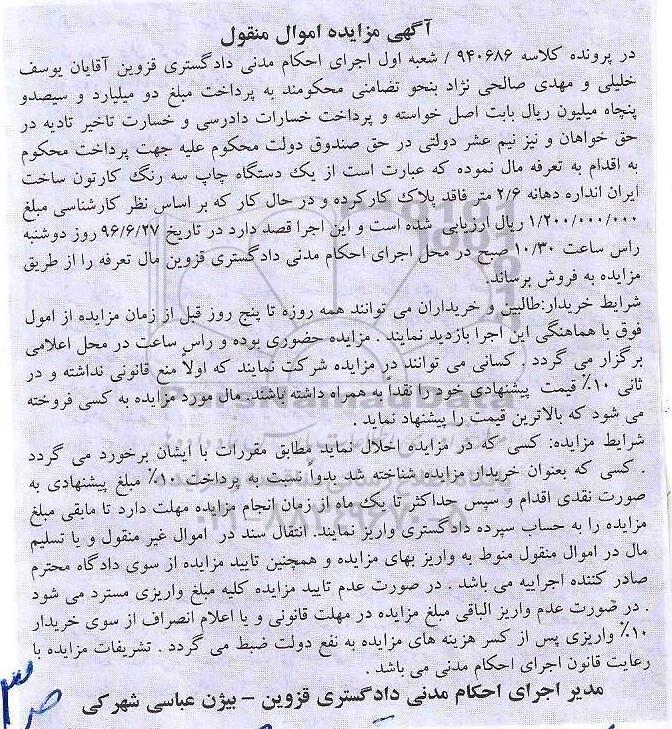 آگهی مزایده اموال منقول
در پرونده کلاسه ۹۴۰۶۸۶ / شعبه اول اجرای احکام مدنی دادگستری قزوین آقایان یوسف
خلیلی و مهدی صالحی نژاد بنحو تضامنی محکومند به پرداخت مبلغ دو میلیارد و سیصدو
پنجاه میلیون ریال بابت اصل خواسته و پرداخت خسارات دادرسی و خسارت تاخیر تادیه در
حق خواهان و نیز نیم عشر دولتی در حق صندوق دولت محکوم علیه جهت پرداخت محکوم
به اقدام به تعرفه مال نموده که عبارت است از یک دستگاه چاپ سه رنگ کارتون ساخت
ایران انداره دهانه ۲/۶ متر فاقد پلاک کارکرده و در حال کار که بر اساس نظر کارشناسی مبلغ
۱/۲۰۰/۰۰۰/۰۰۰ ریال ارزیابی شده است و این اجرا قصد دارد در تاریخ ۹۶/۶/۲۷ روز دوشنبه
راس ساعت ۱۰/۳۰ صبح در محل اجرای احکام مدنی دادگستری قزوین مال تعرفه را از طریق
مزایده به فروش برساند.
شرایط خریدار:طالبین و خریداران می توانند همه روزه تا پنج روز قبل از زمان مزایده از امول
فوق با هماهنگی این اجرا بازدید نمایند . مزایده حضوری بوده و راس ساعت در محل اعلامی
برگزار می گردد . کسانی می توانند در مزایده شرکت نمایند که اولاً منع قانونی نداشته و در
ثانی ۱۰٪ قیمت پیشنهادی خود را نقداً به همراه داشته باشند. مال مورد مزایده به کسی فروخته
می شود که بالاترین قیمت را پیشنهاد نماید .
شرایط مزایده: کسی که در مزایده اخلال نماید مطابق مقررات با ایشان برخورد می گردد
. کسی که بعنوان خریدار مزایده شناخته شد بدواً نسبت به پرداخت ۱۰٪ مبلغ پیشنهادی به
صورت نقدی اقدام و سپس حداکثر تا یک ماه از زمان انجام مزایده مهلت دارد تا مابقی مبلغ
مزایده را به حساب سپرده دادگستری واریز نمایند. انتقال سند در اموال غیر منقول و یا تسلیم
مال در اموال منقول منوط به واریز بهای مزایده و همچنین تایید مزایده از سوی دادگاه محترم
صادر کننده اجراییه می باشد . در صورت عدم تایید مزایده کلیه مبلغ واریزی مسترد می شود
. در صورت عدم واریز الباقی مبلغ مزایده در مهلت قانونی و یا اعلام انصراف از سوی خریدار
۱۰٪ واریزی پس از کسر هزینه های مزایده به نفع دولت ضبط می گردد . تشریفات مزایده با
رعایت قانون اجرای احکام مدنی می باشد .
مدیر اجرای احکام مدنی دادگستری قزوین - بیژن عباسی شهرکی
ParsNamadData